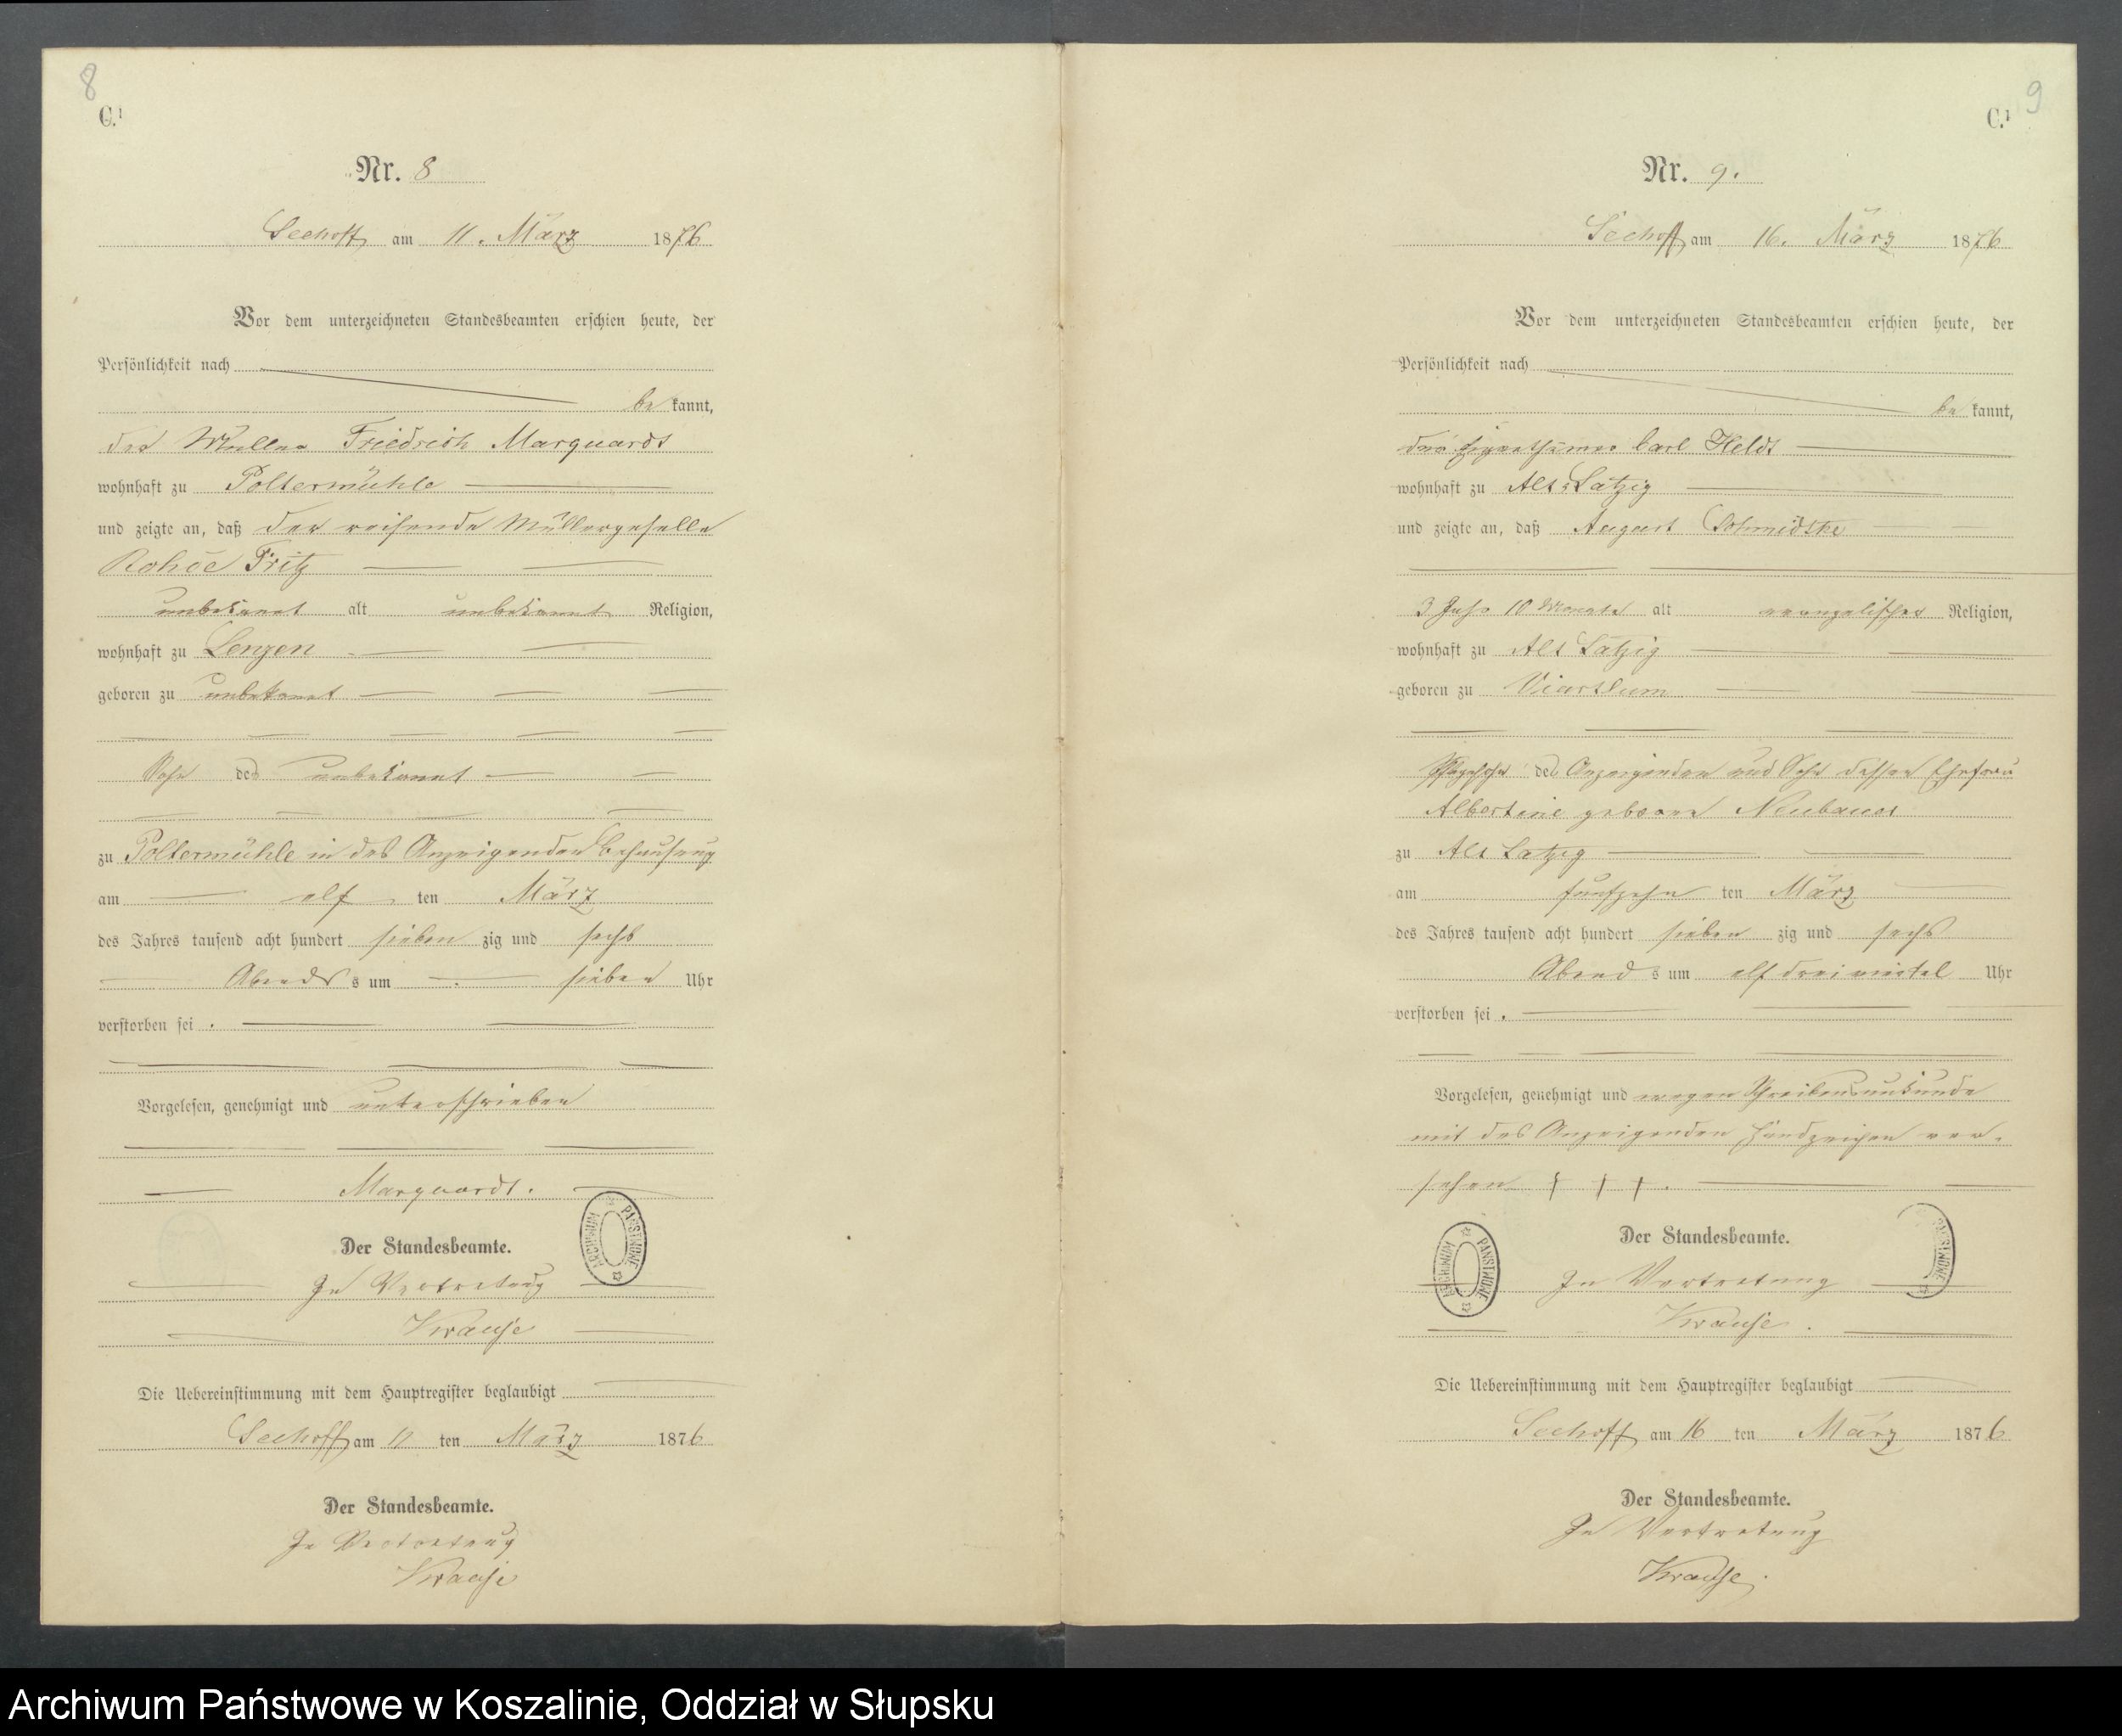 8
C.¹
Nr. 8
Seehoff am 11. März 1876
Vor dem unterzeichneten Standesbeamten erschien heute, der
Persönlichkeit nach
be kannt,
der Müller Friedrich Marquardt
wohnhaft zu Poltermühle
und zeigte an, daß der reisende Müllergeselle
Rohde Fritz
unbekannt alt unbekannt Religion,
wohnhaft zu Lenzen
geboren zu unbekannt
Sohn des unbekannt
zu Poltermühle in des Anzeigenden Behausung
am elf ten März
des Jahres tausend acht hundert sieben zig und sechs
Abends s um sieben Uhr
verstorben sei .
Vorgelesen, genehmigt und unterschrieben
Marquardt.
ARCHIWUM PAŃSTWOWE
Der Standesbeamte.
In Vertretung
Krause
Die Uebereinstimmung mit dem Hauptregister beglaubigt
Seehoff am 11 ten März 1876
Der Standesbeamte.
In Vertretung
Krause
9
C.¹
Nr. 9.
Seehoff am 16. März 1876
Vor dem unterzeichneten Standesbeamten erschien heute, der
Persönlichkeit nach
be kannt,
der Eigenthümer Carl Heldt
wohnhaft zu Alt Latzig
und zeigte an, daß August Schmidtke
3 Jahr 10 Monate alt evangelischer Religion,
wohnhaft zu Alt Latzig
geboren zu Viartlum
des Anzeigenden und Sohn dessen Ehefrau
Albertine geborne Neubauer
zu Alt Latzig
am funfzehn ten März
des Jahres tausend acht hundert sieben zig und sechs
Abend s um elf dreiviertel Uhr
verstorben sei .
Vorgelesen, genehmigt und wegen Schreibensunkunde
mit des Anzeigenden Handzeichen ver-
sehen † † † .
ARCHIWUM PAŃSTWOWE
PAŃSTWOWE
Der Standesbeamte.
In Vertretung
Krause.
Die Uebereinstimmung mit dem Hauptregister beglaubigt
Seehoff am 16 ten März 1876
Der Standesbeamte.
In Vertretung
Krause.
Archiwum Państwowe w Koszalinie, Oddział w Słupsku